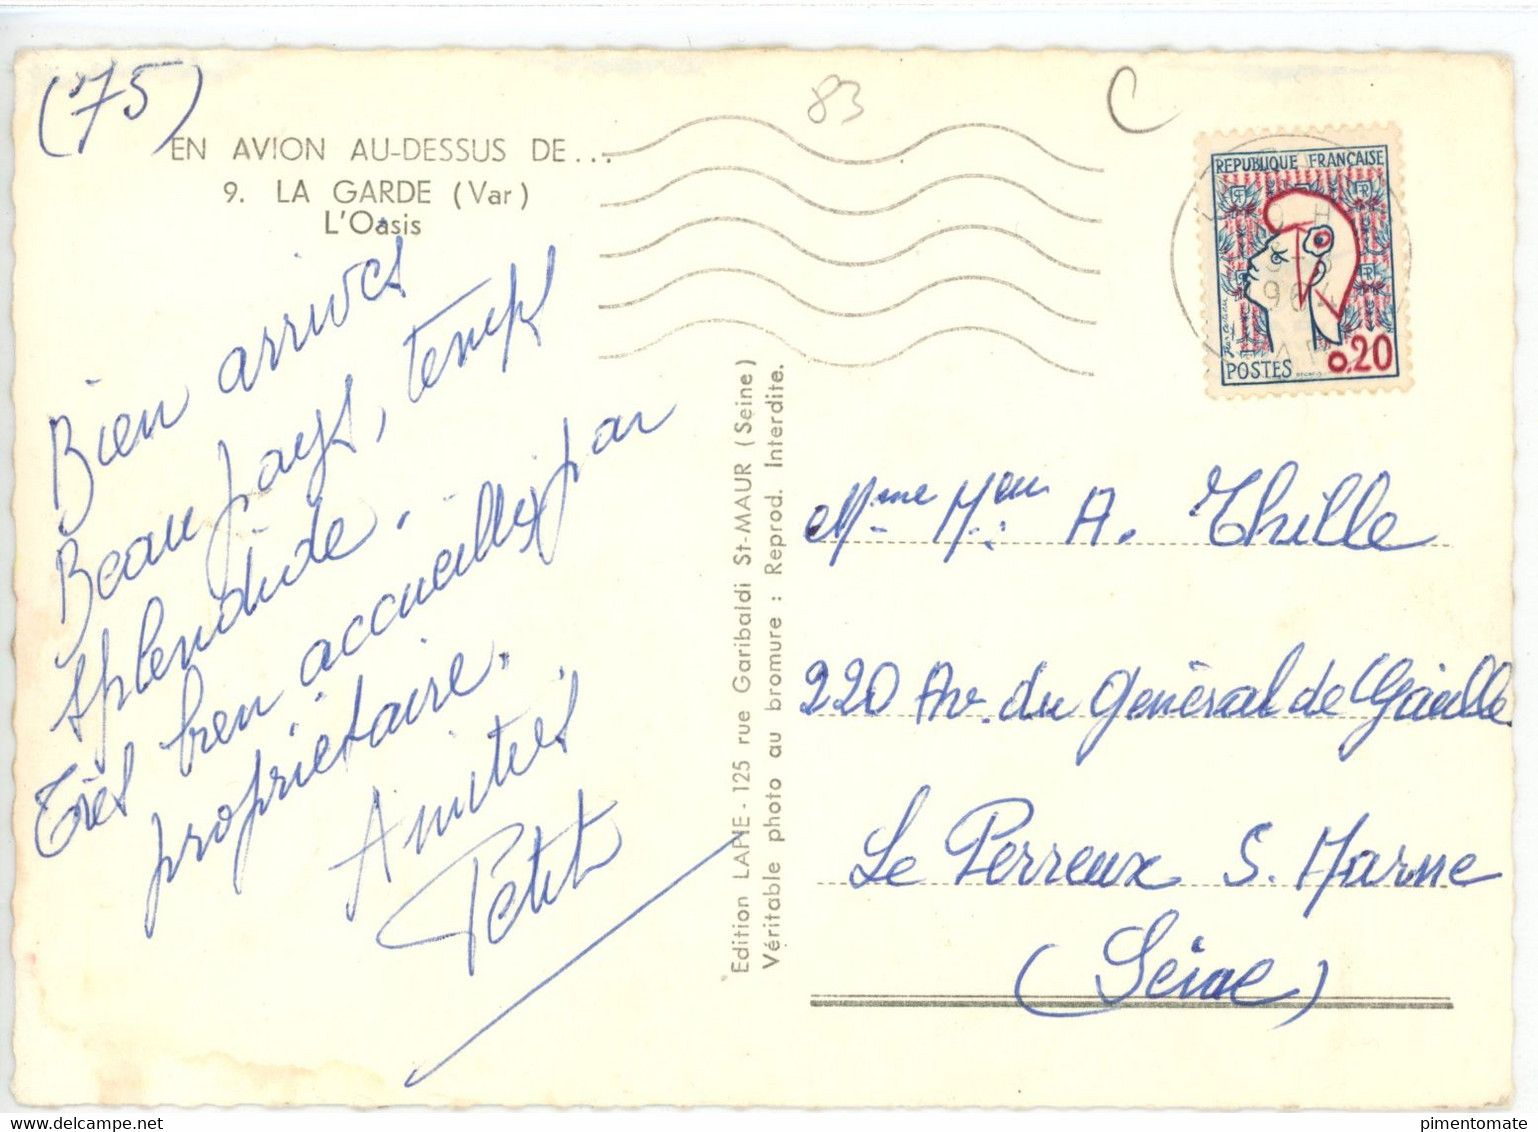 (75)
83
C
EN AVION AU-DESSUS DE...
9. LA GARDE (Var)
L'Oasis
Bien arrivés
Beau pays, temps
splendide.
Très bien accueillis par
propriétaire.
Amitiés
Petit
Edition LAPIE - 125 rue Garibaldi St-MAUR (Seine)
Véritable photo au bromure : Reprod. Interdite.
REPUBLIQUE FRANÇAISE
POSTES
0,20
Mme Mr A. Thille
220 Av. du Général de Gaulle
Le Perreux S. Marne
(Seine)
www.delcampe.net
pimentomate